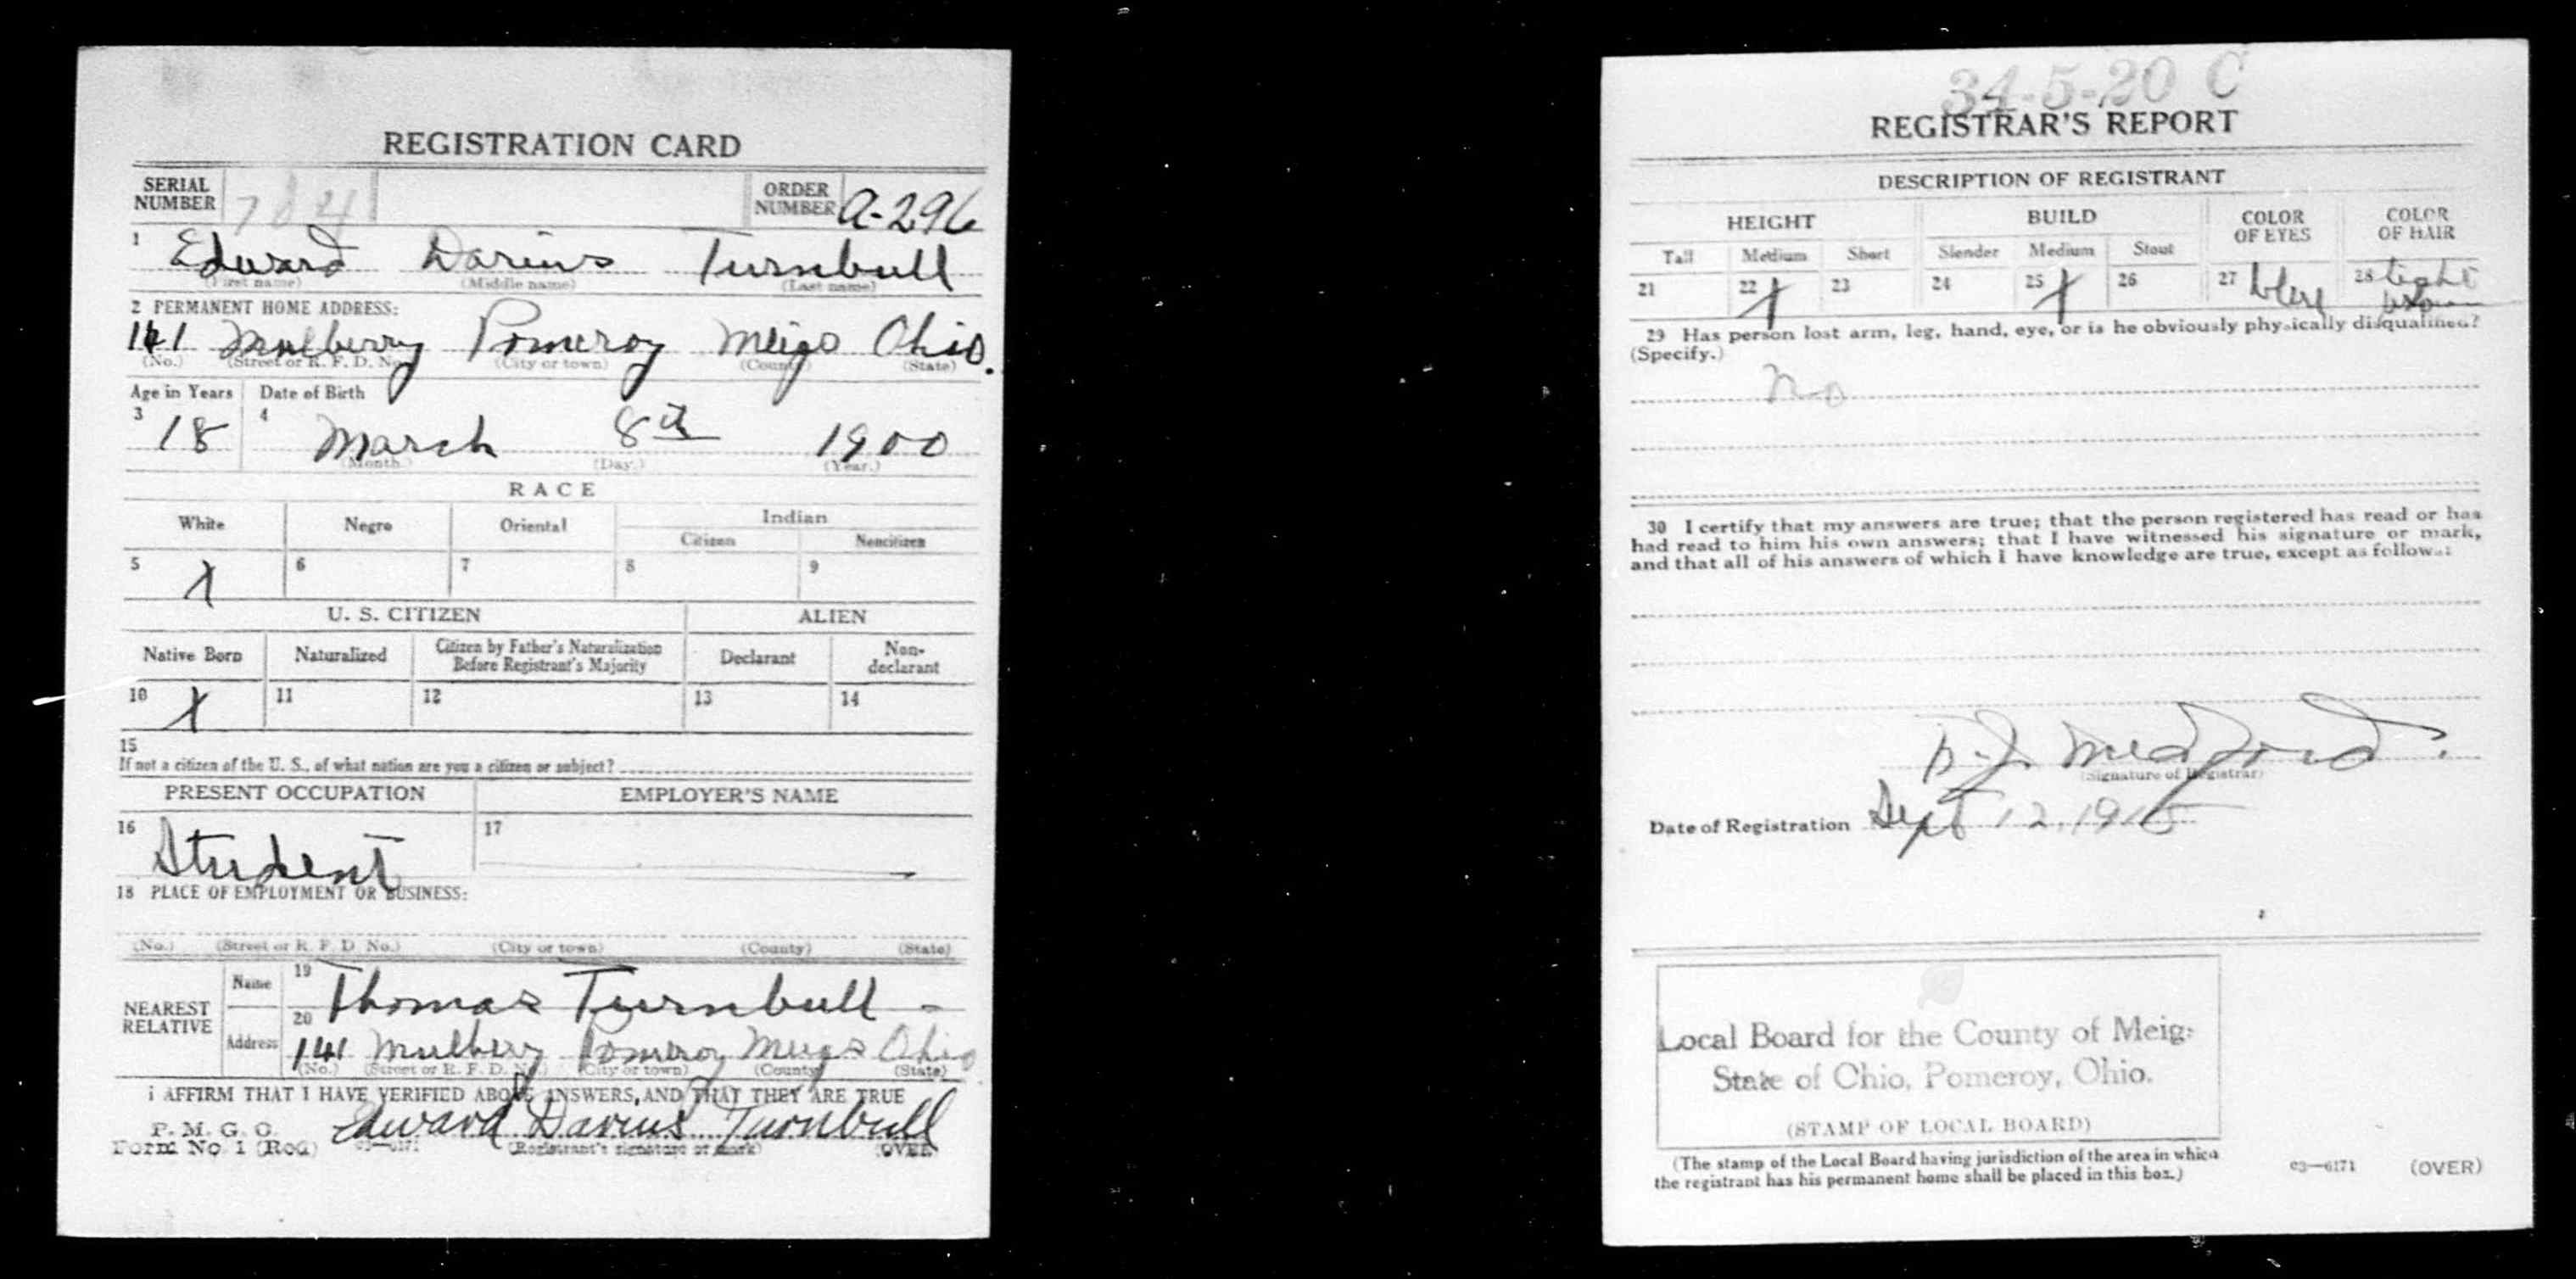 REGISTRATION CARD
SERIAL NUMBER 784 ORDER NUMBER A-296
1 Edward Darius Turnbull
(First name) (Middle name) (Last name)
2 PERMANENT HOME ADDRESS:
141 Mulberry Pomeroy Meigs Ohio.
(No.) (Street or R. F. D. No.) (City or town) (County) (State)
Age in Years Date of Birth
3 18 4 March 8th 1900
(Month.) (Day.) (Year.)
RACE
White Negro Oriental Indian
Citizen Noncitizen
5 X 6 7 8 9
U. S. CITIZEN ALIEN
Native Born Naturalized Citizen by Father's Naturalization Before Registrant's Majority Declarant Non-declarant
10 X 11 12 13 14
15
If not a citizen of the U. S., of what nation are you a citizen or subject?
PRESENT OCCUPATION EMPLOYER'S NAME
16 Student 17
18 PLACE OF EMPLOYMENT OR BUSINESS:
(No.) (Street or R. F. D. No.) (City or town) (County) (State)
NEAREST RELATIVE Name 19 Thomas Turnbull
Address 20 141 Mulbery Pomeroy Meigs Ohio
(No.) (Street or R. F. D. No.) (City or town) (County) (State)
I AFFIRM THAT I HAVE VERIFIED ABOVE ANSWERS, AND THAT THEY ARE TRUE
P. M. G. O.
Form No. 1 (Red) 03—6171 Edward Darius Turnbull
(Registrant's signature or mark) (OVER)
34-5-20 C
REGISTRAR'S REPORT
DESCRIPTION OF REGISTRANT
HEIGHT BUILD COLOR OF EYES COLOR OF HAIR
Tall Medium Short Slender Medium Stout
21 22 X 23 24 25 X 26 27 blue 28 light brown
29 Has person lost arm, leg, hand, eye, or is he obviously physically disqualified?
(Specify.)
no
30 I certify that my answers are true; that the person registered has read or has
had read to him his own answers; that I have witnessed his signature or mark,
and that all of his answers of which I have knowledge are true, except as follows:
Medford
(Signature of Registrar)
Date of Registration Sept 12, 1918
Local Board for the County of Meigs
State of Ohio, Pomeroy, Ohio.
(STAMP OF LOCAL BOARD)
(The stamp of the Local Board having jurisdiction of the area in which
the registrant has his permanent home shall be placed in this box.)
03—6171 (OVER)